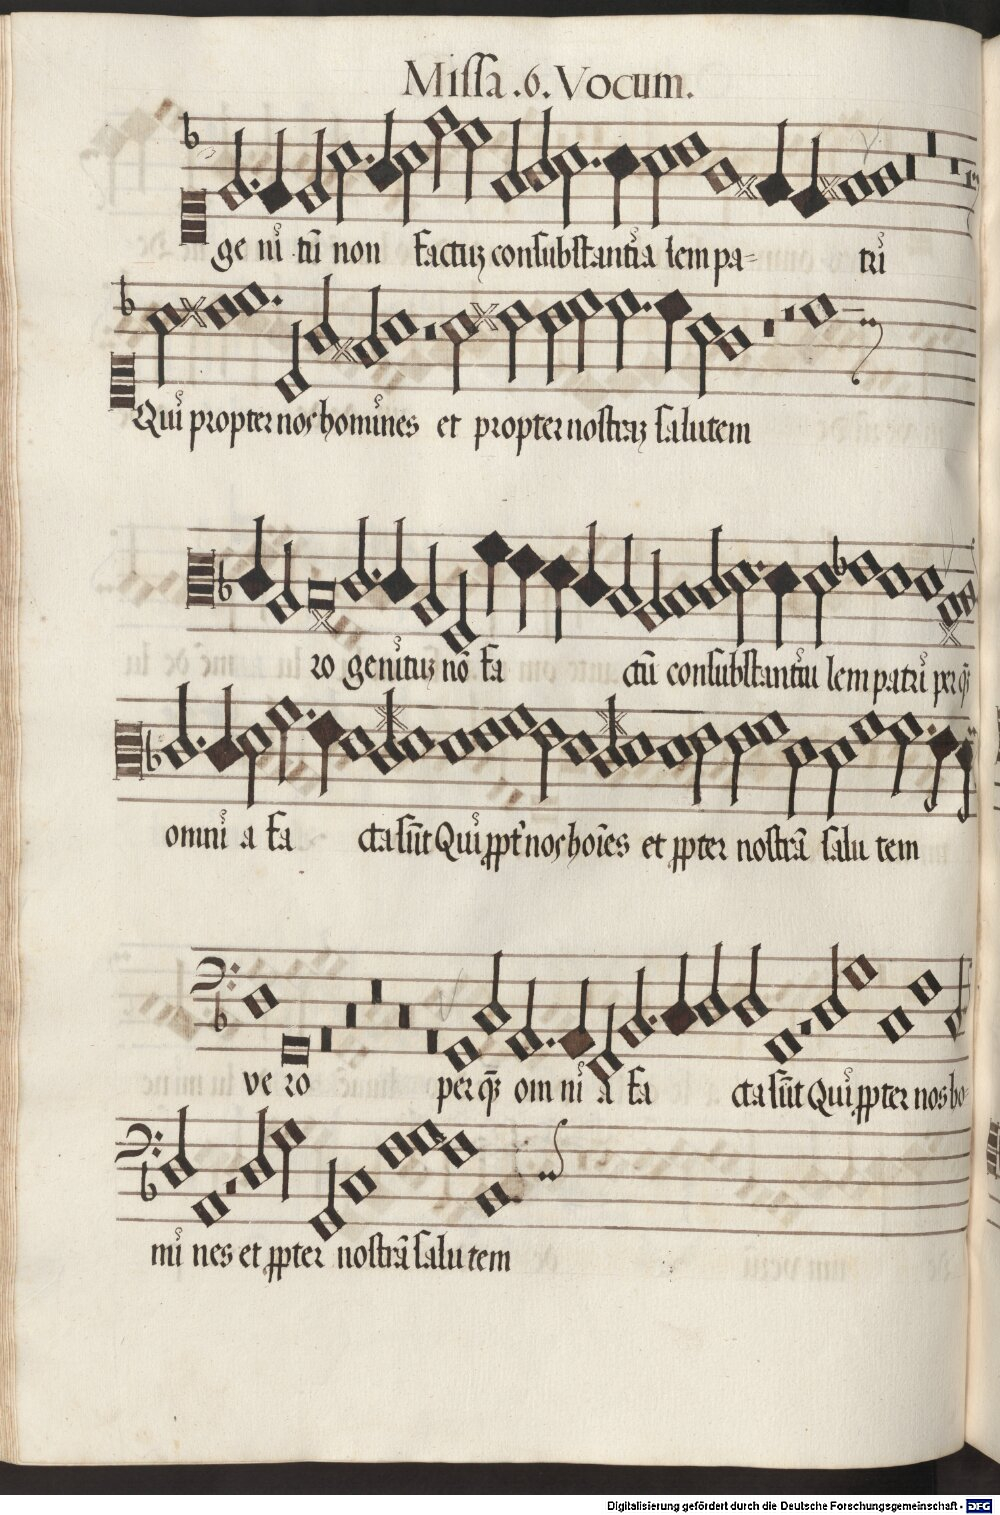 Missa .6. Vocum.
ge ni tũ non factuʒ consubstantia lem pa- tri
Qui propter nos homines et propter nostraʒ salutem
ro genituʒ nõ fa ctũ consubstantiu lem patri per qʒ̃
omni a fa cta sũt Qui ꝓpt̃ nos hoĩes et ꝓpter nostrã salu tem
ve ro per qʒ̃ om ni a fa cta sũt Qui ꝓpter nos ho-
mi nes et ꝓpter nostrã salu tem
Digitalisierung gefördert durch die Deutsche Forschungsgemeinschaft - DFG